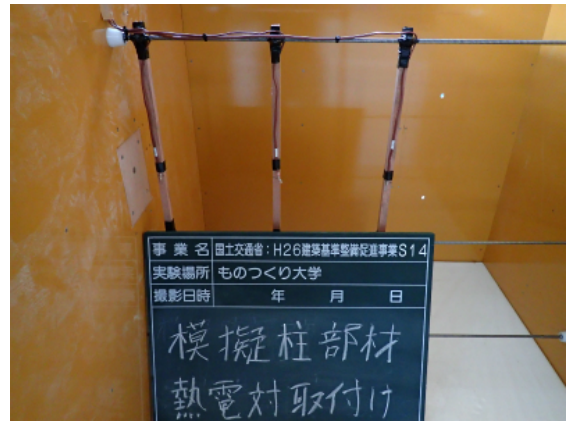 事業名 国土交通省：H26建築基準整備促進事業S14
実験場所 ものつくり大学
撮影日時 年 月 日
模擬柱部材
熱電対取付け